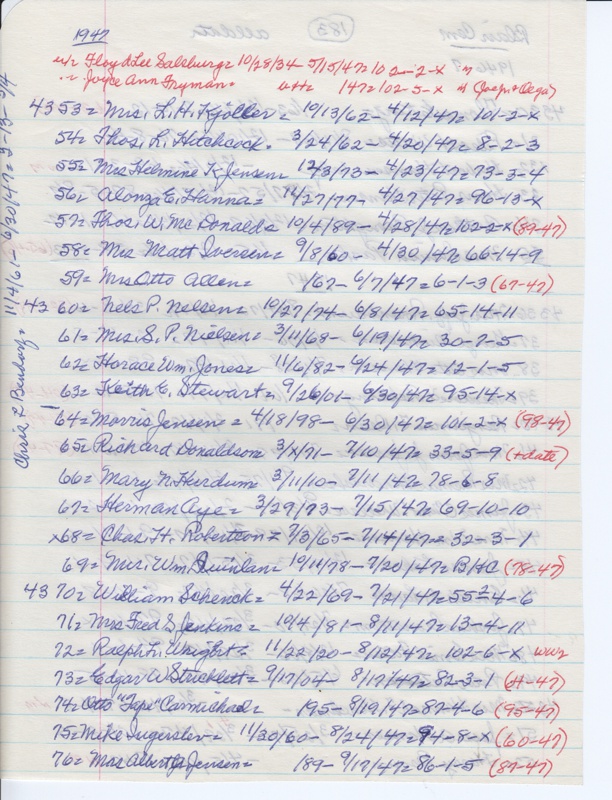 1947
w/2 Floyd Lee Salsburg = 10/28/34 - 5/15/47 = 102-2-x
" = Joyce Ann Fryman = 147 = 102-5-x
4353 = Mrs. L. H. Kjoller = 10/13/62 - 4/12/47 = 101-2-x
54 = Thos. L. Hitchcock = 3/24/62 - 4/20/47 = 8-2-3
55 = Mrs Helmine K Jensen 12/3/73 - 4/23/47 = 73-3-4
56 = Alonza E. Hanna = 11/27/77 - 4/27/47 = 96-13-x
57 = Thos. W. McDonald = 10/4/89 - 4/28/47 = 102-2-x (89-47)
58 = Mrs Matt Iversen = 9/8/60 - 4/30/47 = 66-14-9
59 = Mrs Otto Allen = 167 - 6/7/47 = 6-1-3 (67-47)
4360 = Nels P. Nelsen = 10/27/74 - 6/8/47 = 65-14-11
61 = Mrs. S. P. Nielsen = 3/11/68 - 6/19/47 = 30-7-5
62 = Horace Wm. Jones = 11/6/82 - 6/24/47 = 12-1-5
63 = Keith E. Stewart = 9/26/01 - 6/30/47 = 95-14-x
64 = Morris Jensen = 4/18/98 - 6/30/47 = 101-2-x (98-47)
65 = Richard Donaldson 3/x/71 - 7/10/47 = 33-5-9 (+date)
66 = Mary N. Hurdum = 3/11/10 - 7/11/47 = 78-6-8
67 = Herman Aye = 3/29/73 - 7/15/47 = 69-10-10
x68 = Chas. H. Robertson = 7/3/65 - 7/14/47 = 32-3-1
69 = Mrs. Wm Quinlan = 10/11/78 - 7/20/47 = B/4C (78-47)
4370 = William Schenck = 4/22/69 - 7/21/47 = 55½-4-6
71 = Mrs Fred S. Jenkins = 10/4/81 - 8/11/47 = 13-4-11
72 = Ralph L. Wright = 11/22/20 - 8/12/47 = 102-6-x WW2
73 = Edgar W Stricklett = 9/17/04 - 8/17/47 = 82-3-1 (4-47)
74 = Otto "Tape" Carmichael = 195 - 8/19/47 = 87-4-6 (95-47)
75 = Mike Ingersley = 11/30/60 - 8/24/47 = 94-8-x (60-47)
76 = Mrs Albert Jensen = 189 - 9/17/47 = 86-1-5 (89-47)